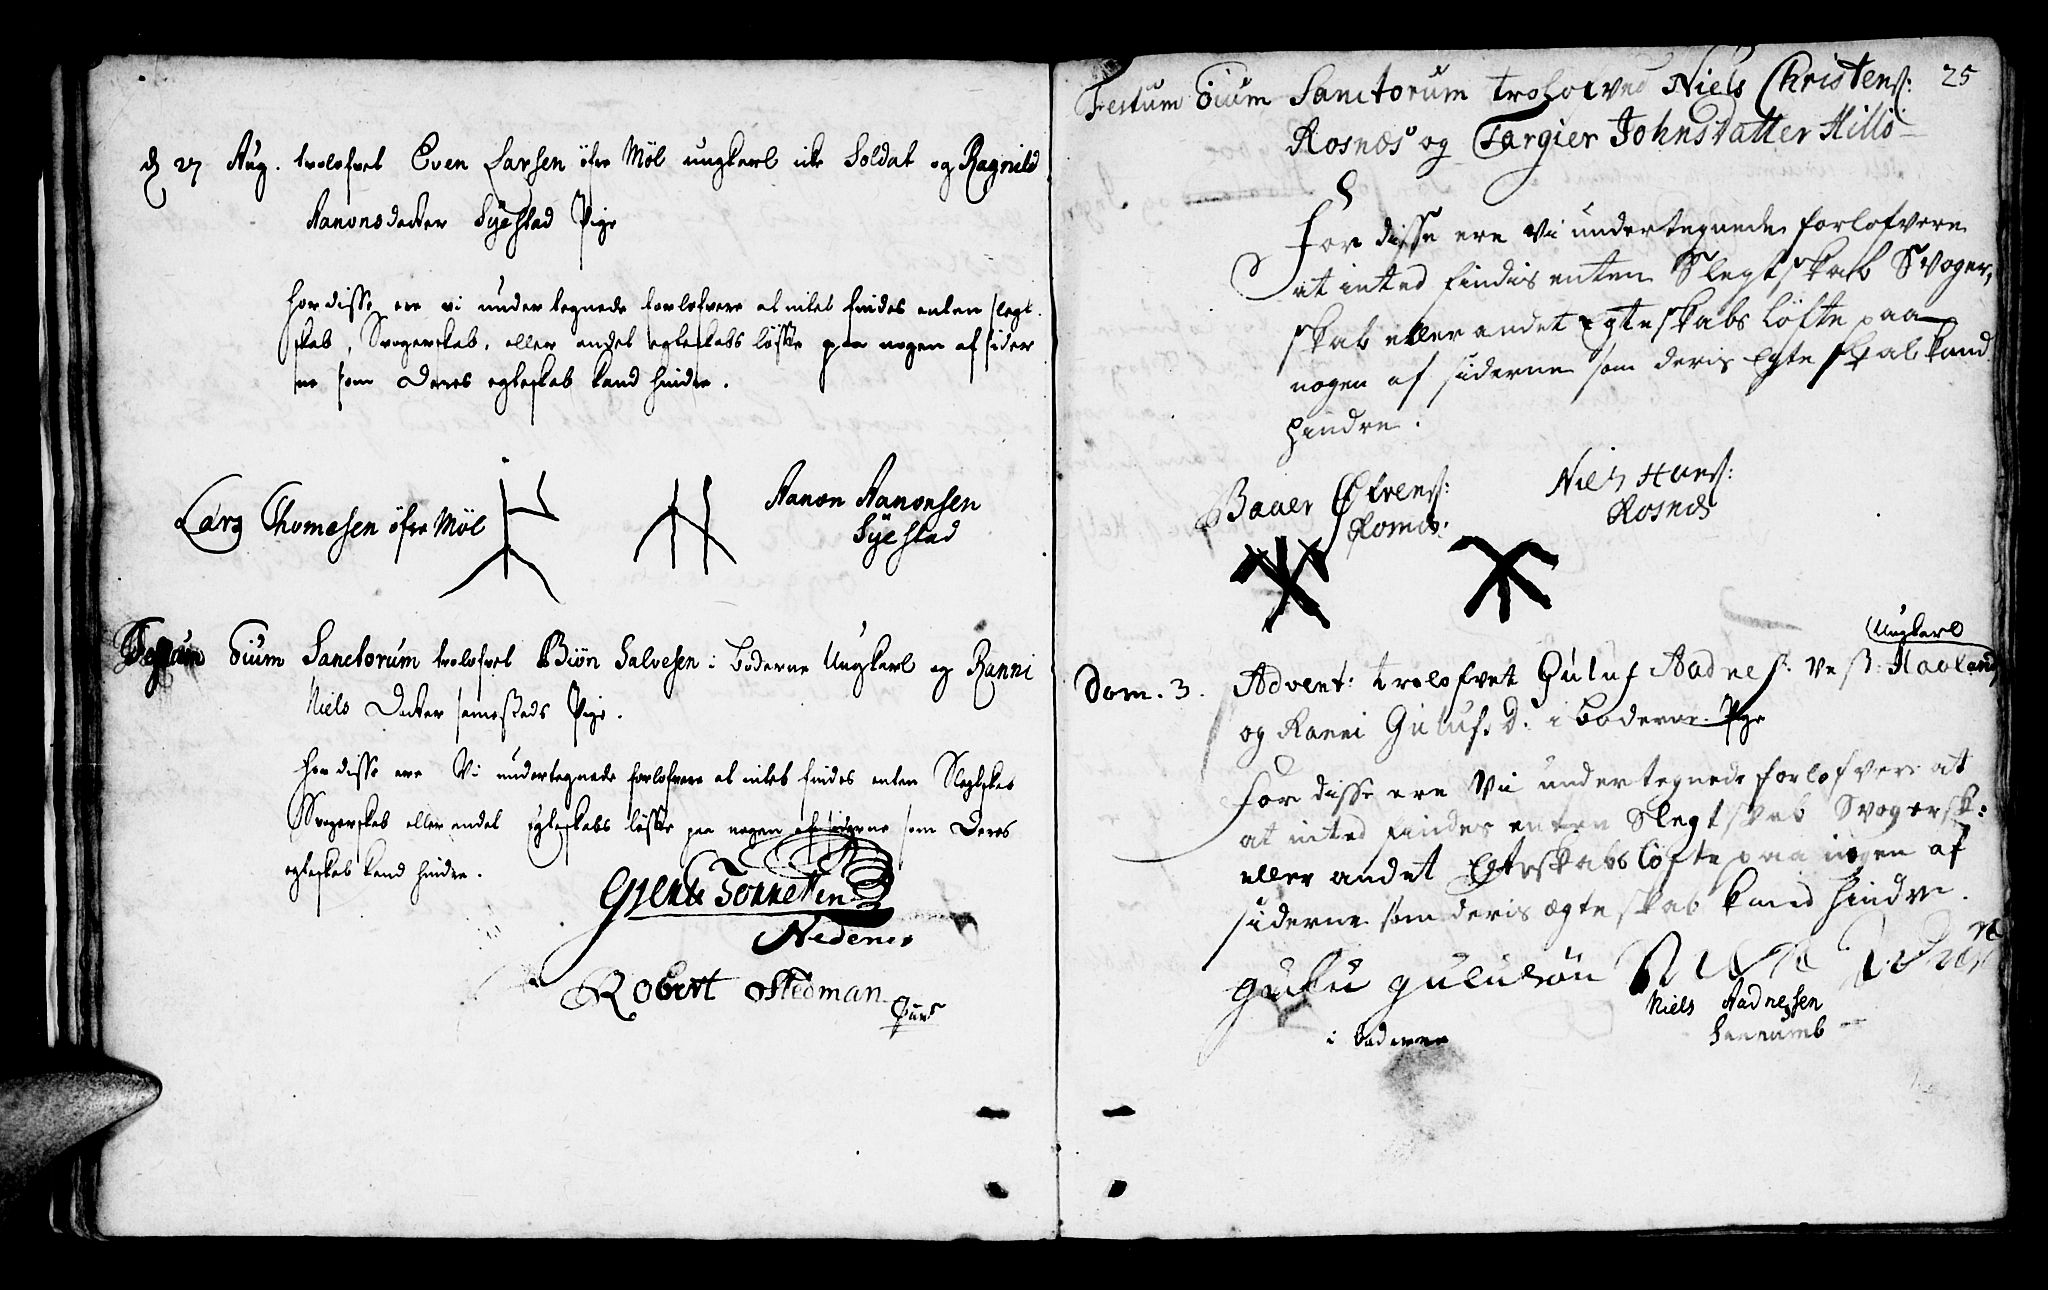 d 27 Aug. trolofvet Even Larsen öfre Möl ungkarl icke Soldat og Ragnild
Aanonsdatter Syestad Pige
For disse ere vi undertegnede forlofvere at intet findes enten slegt
skab, Svogerskab, eller andet egteskabs löfte paa nogen af sider
ne som Deres egteskab kand hindre.
Lars Thomesen öfre Möl
Aanon Aanonsen
Syestad
Festum Oium Sanctorum trolofvet Biön Salvesen i boderne Ungkarl og Ranni
Niels Datter samesteds Pige.
For disse ere Vi undertegnede forlofvere at intet findes enten Slegtskab
Svogerskab eller andet Egteskabs löfte paa nogen af siderne som Deres
egteskab kand hindre.
Tönnesen
Nedenes
Robert Stedman
25
Festum Oium Sanctorum troloved Niels Christens:
Rosnæs og Targier Johnsdatter Hillö
For disse ere Vi undertegnede forlofvere
at inted findis enten Slegtskab Svoger,
skab eller andet Egteskabs löfte paa
nogen af siderne som deris Egteskab kand
hindre.
Baaer
Niels Hans:
Rosnæs
Ungkarl
Dom. 3. Advent: trolofvet Guluf Aadnes: Haaland
og Ranni Gulufs D: i boderne Pige
For disse ere Vii undertegnede forlofvere at
at inted findes enten Slegtskab Svogersk:
eller andet Egteskabs löfte paa nogen af
siderne som deris ægteskab kand hindre.
gulu gulusön
Niels Aadnesen
i boderne